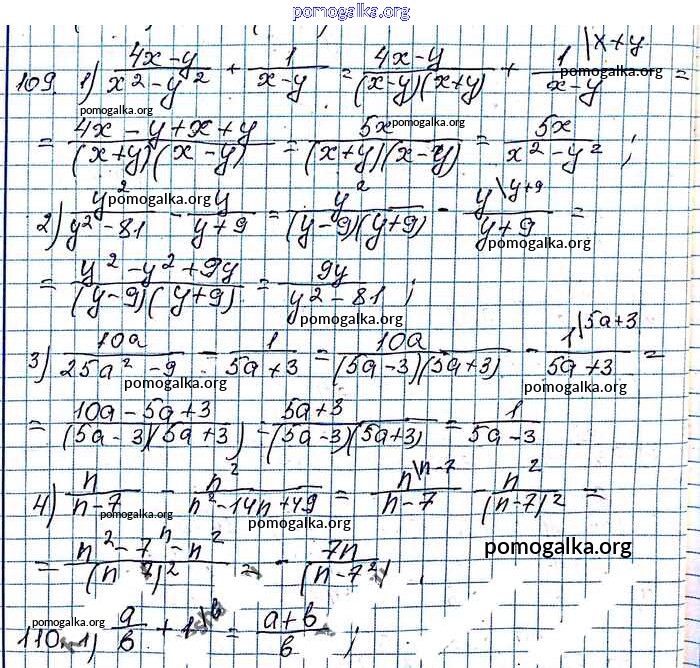 pomogalka.org
109. 1) (4x-y)/(x²-y²) + 1/(x-y) = (4x-y)/((x-y)(x+y)) + 1\x+y/(x-y) =
pomogalka.org pomogalka.org
= (4x-y+x+y)/((x+y)(x-y)) = 5x/((x+y)(x-y)) = 5x/(x²-y²) ;
pomogalka.org
2) y²/(y²-81) - y/(y+9) = y²/((y-9)(y+9)) - y\y+9/(y+9) =
pomogalka.org pomogalka.org
= (y²-y²+9y)/((y-9)(y+9)) = 9y/(y²-81) ;
pomogalka.org
3) 10a/(25a²-9) - 1/(5a+3) = 10a/((5a-3)(5a+3)) - 1\5a+3/(5a+3) =
pomogalka.org pomogalka.org
= (10a-5a+3)/((5a-3)(5a+3)) = (5a+3)/((5a-3)(5a+3)) = 1/(5a-3)
4) n/(n-7) - n²/(n²-14n+49) = n\n-7/(n-7) - n²/(n-7)² =
pomogalka.org pomogalka.org
= (n²-7n-n²)/(n 7)² = - 7n/(n-7²)
pomogalka.org
pomogalka.org
110. 1) a/b + 1\b = (a+b)/b ;